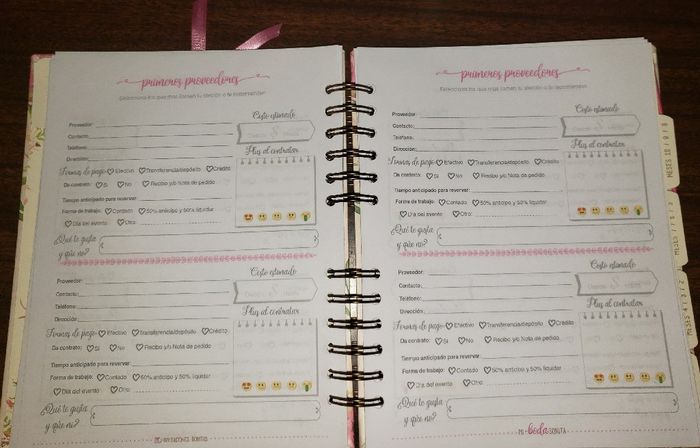 primeros proveedores
Selecciona los que más llamen tu atención o te recomienden
Costo estimado
Proveedor:
Contacto:
Teléfono:
Dirección:
Plus al contratar
Formas de pago: Efectivo Transferencia/depósito Crédito
Da contrato: Si No Recibo y/o Nota de pedido
Tiempo anticipado para reservar:
Forma de trabajo: Contado 50% anticipo y 50% liquidar
Día del evento Otro:
¿Qué te gusta
y qué no?
Costo estimado
Proveedor:
Contacto:
Teléfono:
Dirección:
Plus al contratar
Formas de pago: Efectivo Transferencia/depósito Crédito
Da contrato: Si No Recibo y/o Nota de pedido
Tiempo anticipado para reservar:
Forma de trabajo: Contado 50% anticipo y 50% liquidar
Día del evento Otro:
¿Qué te gusta
y qué no?
BONITAS
primeros proveedores
Selecciona los que más llamen tu atención o te recomienden
Costo estimado
Proveedor:
Contacto:
Teléfono:
Dirección:
Plus al contratar
Formas de pago: Efectivo Transferencia/depósito Crédito
Da contrato: Si No Recibo y/o Nota de pedido
Tiempo anticipado para reservar:
Forma de trabajo: Contado 50% anticipo y 50% liquidar
Día del evento Otro:
¿Qué te gusta
y qué no?
Costo estimado
Proveedor:
Contacto:
Teléfono:
Dirección:
Plus al contratar
Formas de pago: Efectivo Transferencia/depósito Crédito
Da contrato: Si No Recibo y/o Nota de pedido
Tiempo anticipado para reservar:
Forma de trabajo: Contado 50% anticipo y 50% liquidar
Día del evento Otro:
¿Qué te gusta
y qué no?
MI boda BONITA
MESES
MESES
MESES